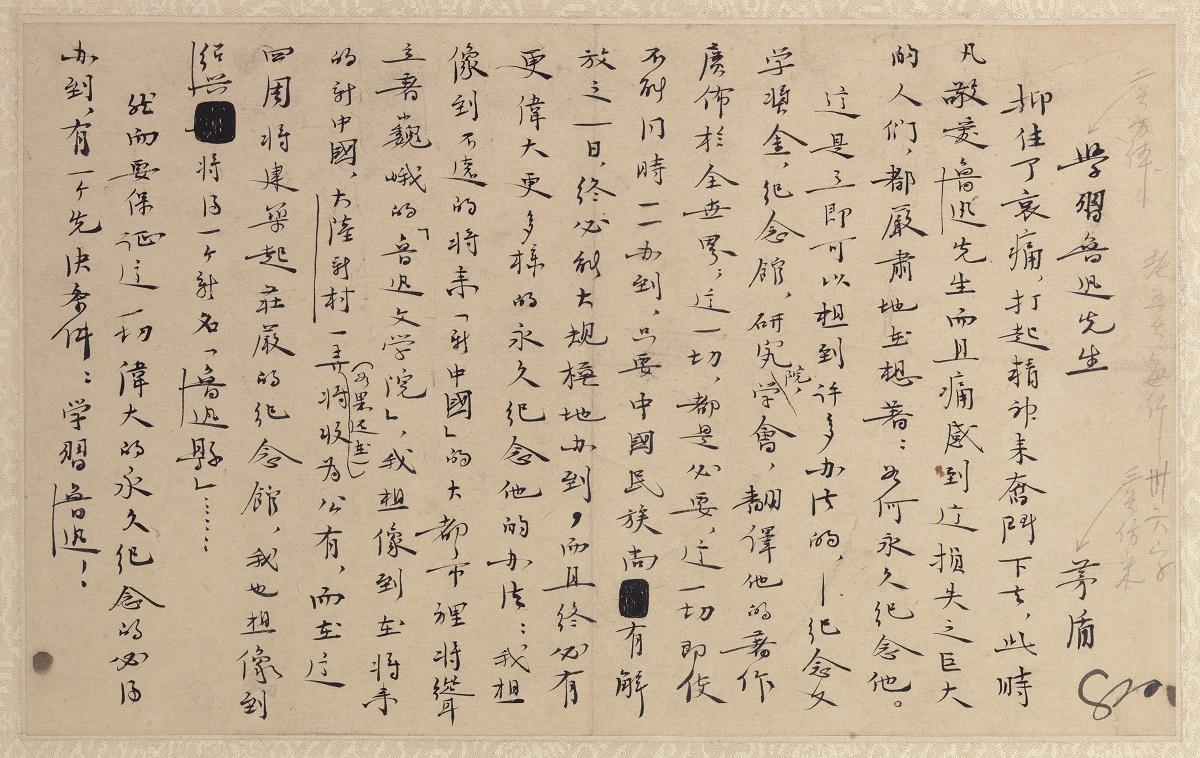 學習魯迅先生 茅盾
抑住了哀痛，打起精神来奮鬥下去，此時
凡敬爱魯迅先生而且痛感到这損失之巨大
的人们，都嚴肅地在想着：如何永久纪念他。
这是立即可以想到许多办法的，—纪念文
学奖金，纪念館，研究院，学會，翻譯他的著作
廣佈於全世界；这一切，都是必要，这一切即使
不能同時一一办到，只要中國民族尚有解
放之一日，终必能大規模地办到，而且终必有
更偉大更多樣的永久纪念他的办法：我想
像到不遠的将来「新中國」的大都市裡将聳
立着巍峨的「魯迅文学院」，我想像到在将来
的新中國，大陸新村一弄（如果还在）将收为公有，而在这
四周将建築起莊嚴的纪念館，我也想像到
绍兴将得一个新名「魯迅縣」……
然而要保证这一切偉大的永久纪念的必得
办到，有一个先决条件：学習魯迅！
每行卅六字